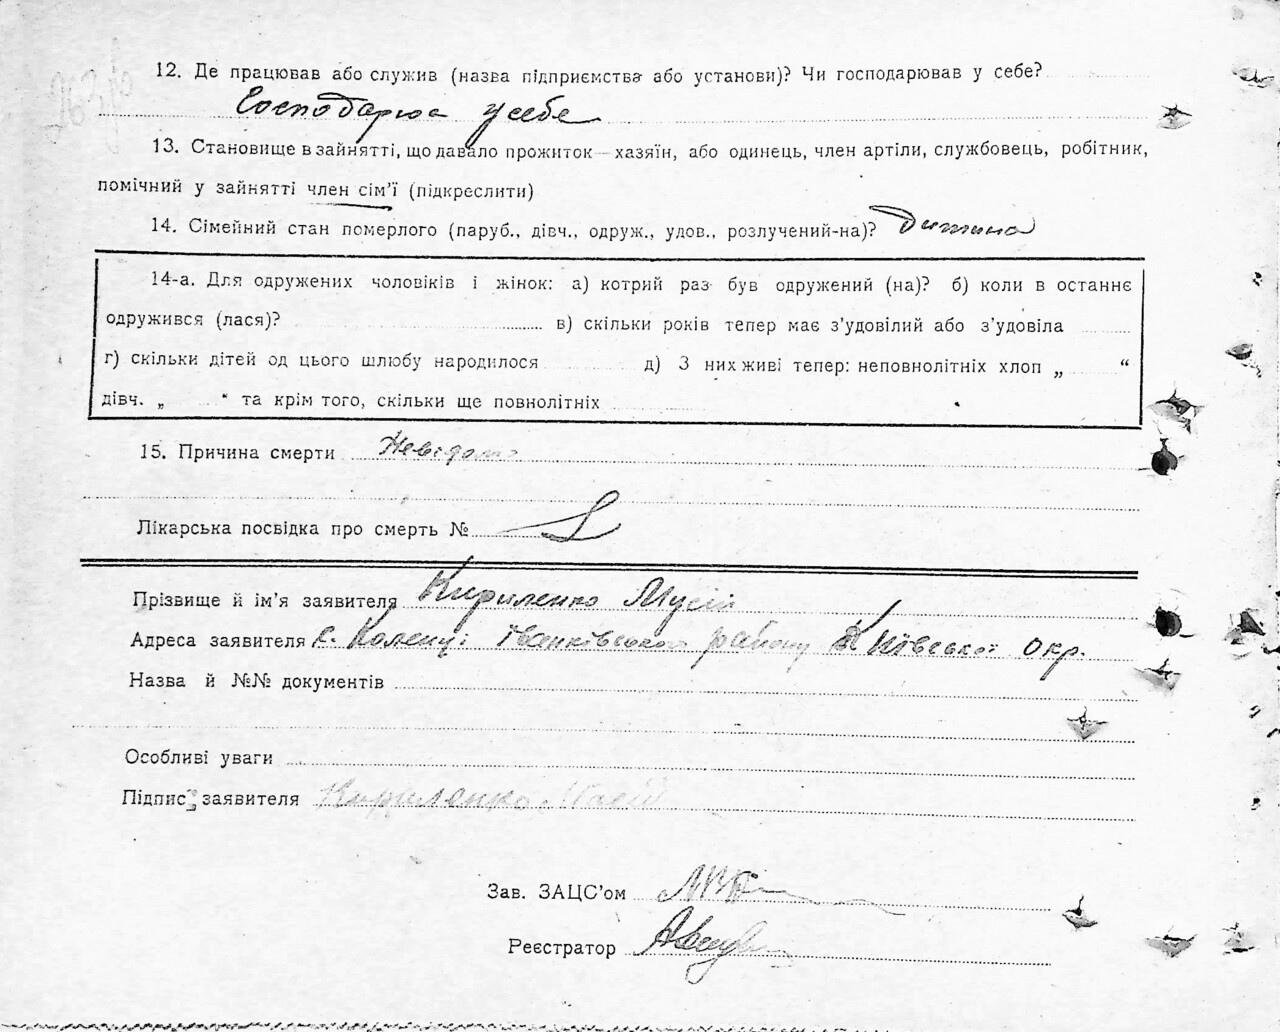 12. Де працював або служив (назва підприємства або установи)? Чи господарював у себе?
Господарюв у себе
13. Становище в зайнятті, що давало прожиток—хазяїн, або одинець, член артіли, службовець, робітник,
помічний у зайнятті член сім'ї (підкреслити)
14. Сімейний стан померлого (паруб., дівч., одруж., удов., розлучений-на)? Дитина
14-а. Для одружених чоловіків і жінок: а) котрий раз був одружений (на)? б) коли в останнє
одружився (лася)? в) скільки років тепер має з'удовілий або з'удовіла
г) скільки дітей од цього шлюбу народилося д) З них живі тепер: неповнолітніх хлоп „ “
дівч. „ “ та крім того, скільки ще повнолітніх
15. Причина смерти Невідома
Лікарська посвідка про смерть №
Прізвище й ім'я заявителя Кириленко Мусій
Адреса заявителя с. Коленці Іванківського району Київської окр.
Назва й №№ документів
Особливі уваги
Підпис заявителя Кириленко Мусій
Зав. ЗАЦС'ом
Реєстратор